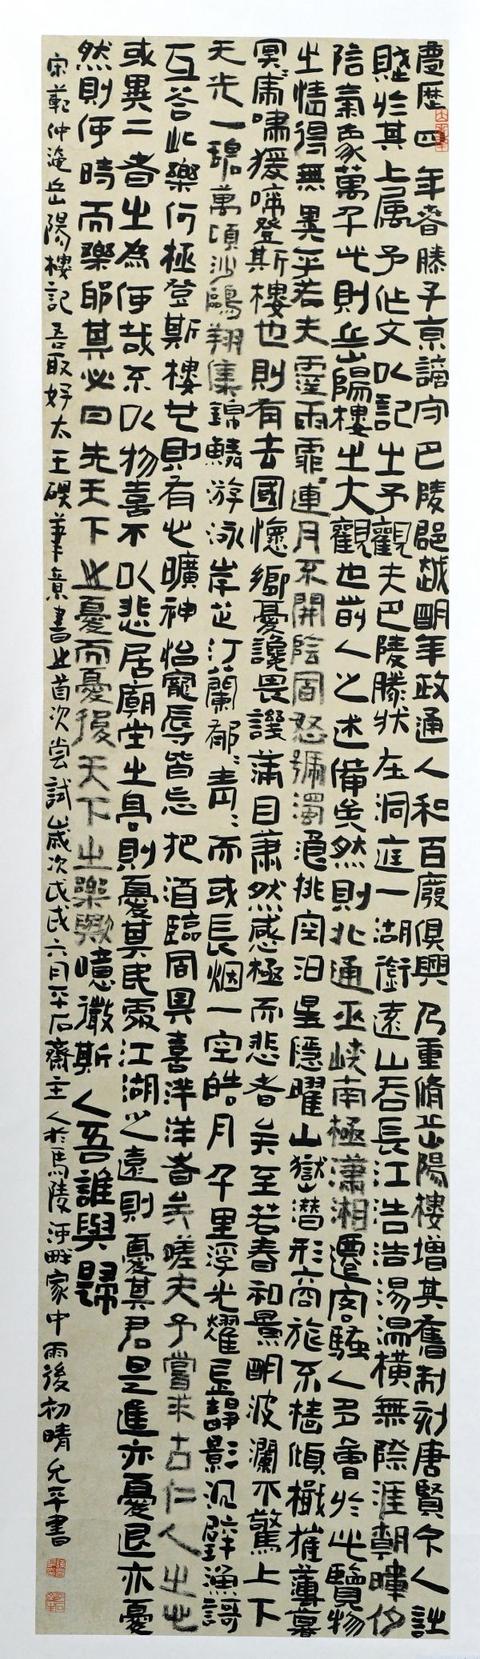 慶歷四年春滕子京謫守巴陵郡越明年政通人和百廢俱興乃重脩岳陽樓增其舊制刻唐賢今人詩
賦於其上屬予作文以記之予觀夫巴陵勝狀在洞庭一湖銜遠山吞長江浩浩湯湯橫無際涯朝暉夕
陰氣象萬千此則岳陽樓之大觀也前人之述備矣然則北通巫峽南極瀟湘遷客騷人多會於此覽物
之情得無異乎若夫霪雨霏〻連月不開陰風怒號濁浪排空日星隱曜山嶽潛形商旅不檣傾檝摧薄暮
冥〻虎嘯猨啼登斯樓也則有去國懷鄉憂讒畏譏滿目蕭然感極而悲者矣至若春和景明波瀾不驚上下
天光一碧萬頃沙鷗翔集錦鱗游泳岸芷汀蘭郁〻青〻而或長烟一空皓月千里浮光耀金靜影沉璧漁謌
互荅此樂何極登斯樓也則有心曠神怡寵辱皆忘把酒臨風其喜洋洋者矣嗟夫予嘗求古仁人之心
或異二者之為何哉不以物喜不以悲居廟堂之高則憂其民處江湖之遠則憂其君是進亦憂退亦憂
然則何時而樂耶其必曰先天下之憂而憂後天下之樂歟噫微斯人吾誰與歸
宋范仲淹岳陽樓記吾取好太王碑筆意書此首次嘗試歲次戊戌六月平石齋主人於馬陵河畔家中雨後初晴允平書